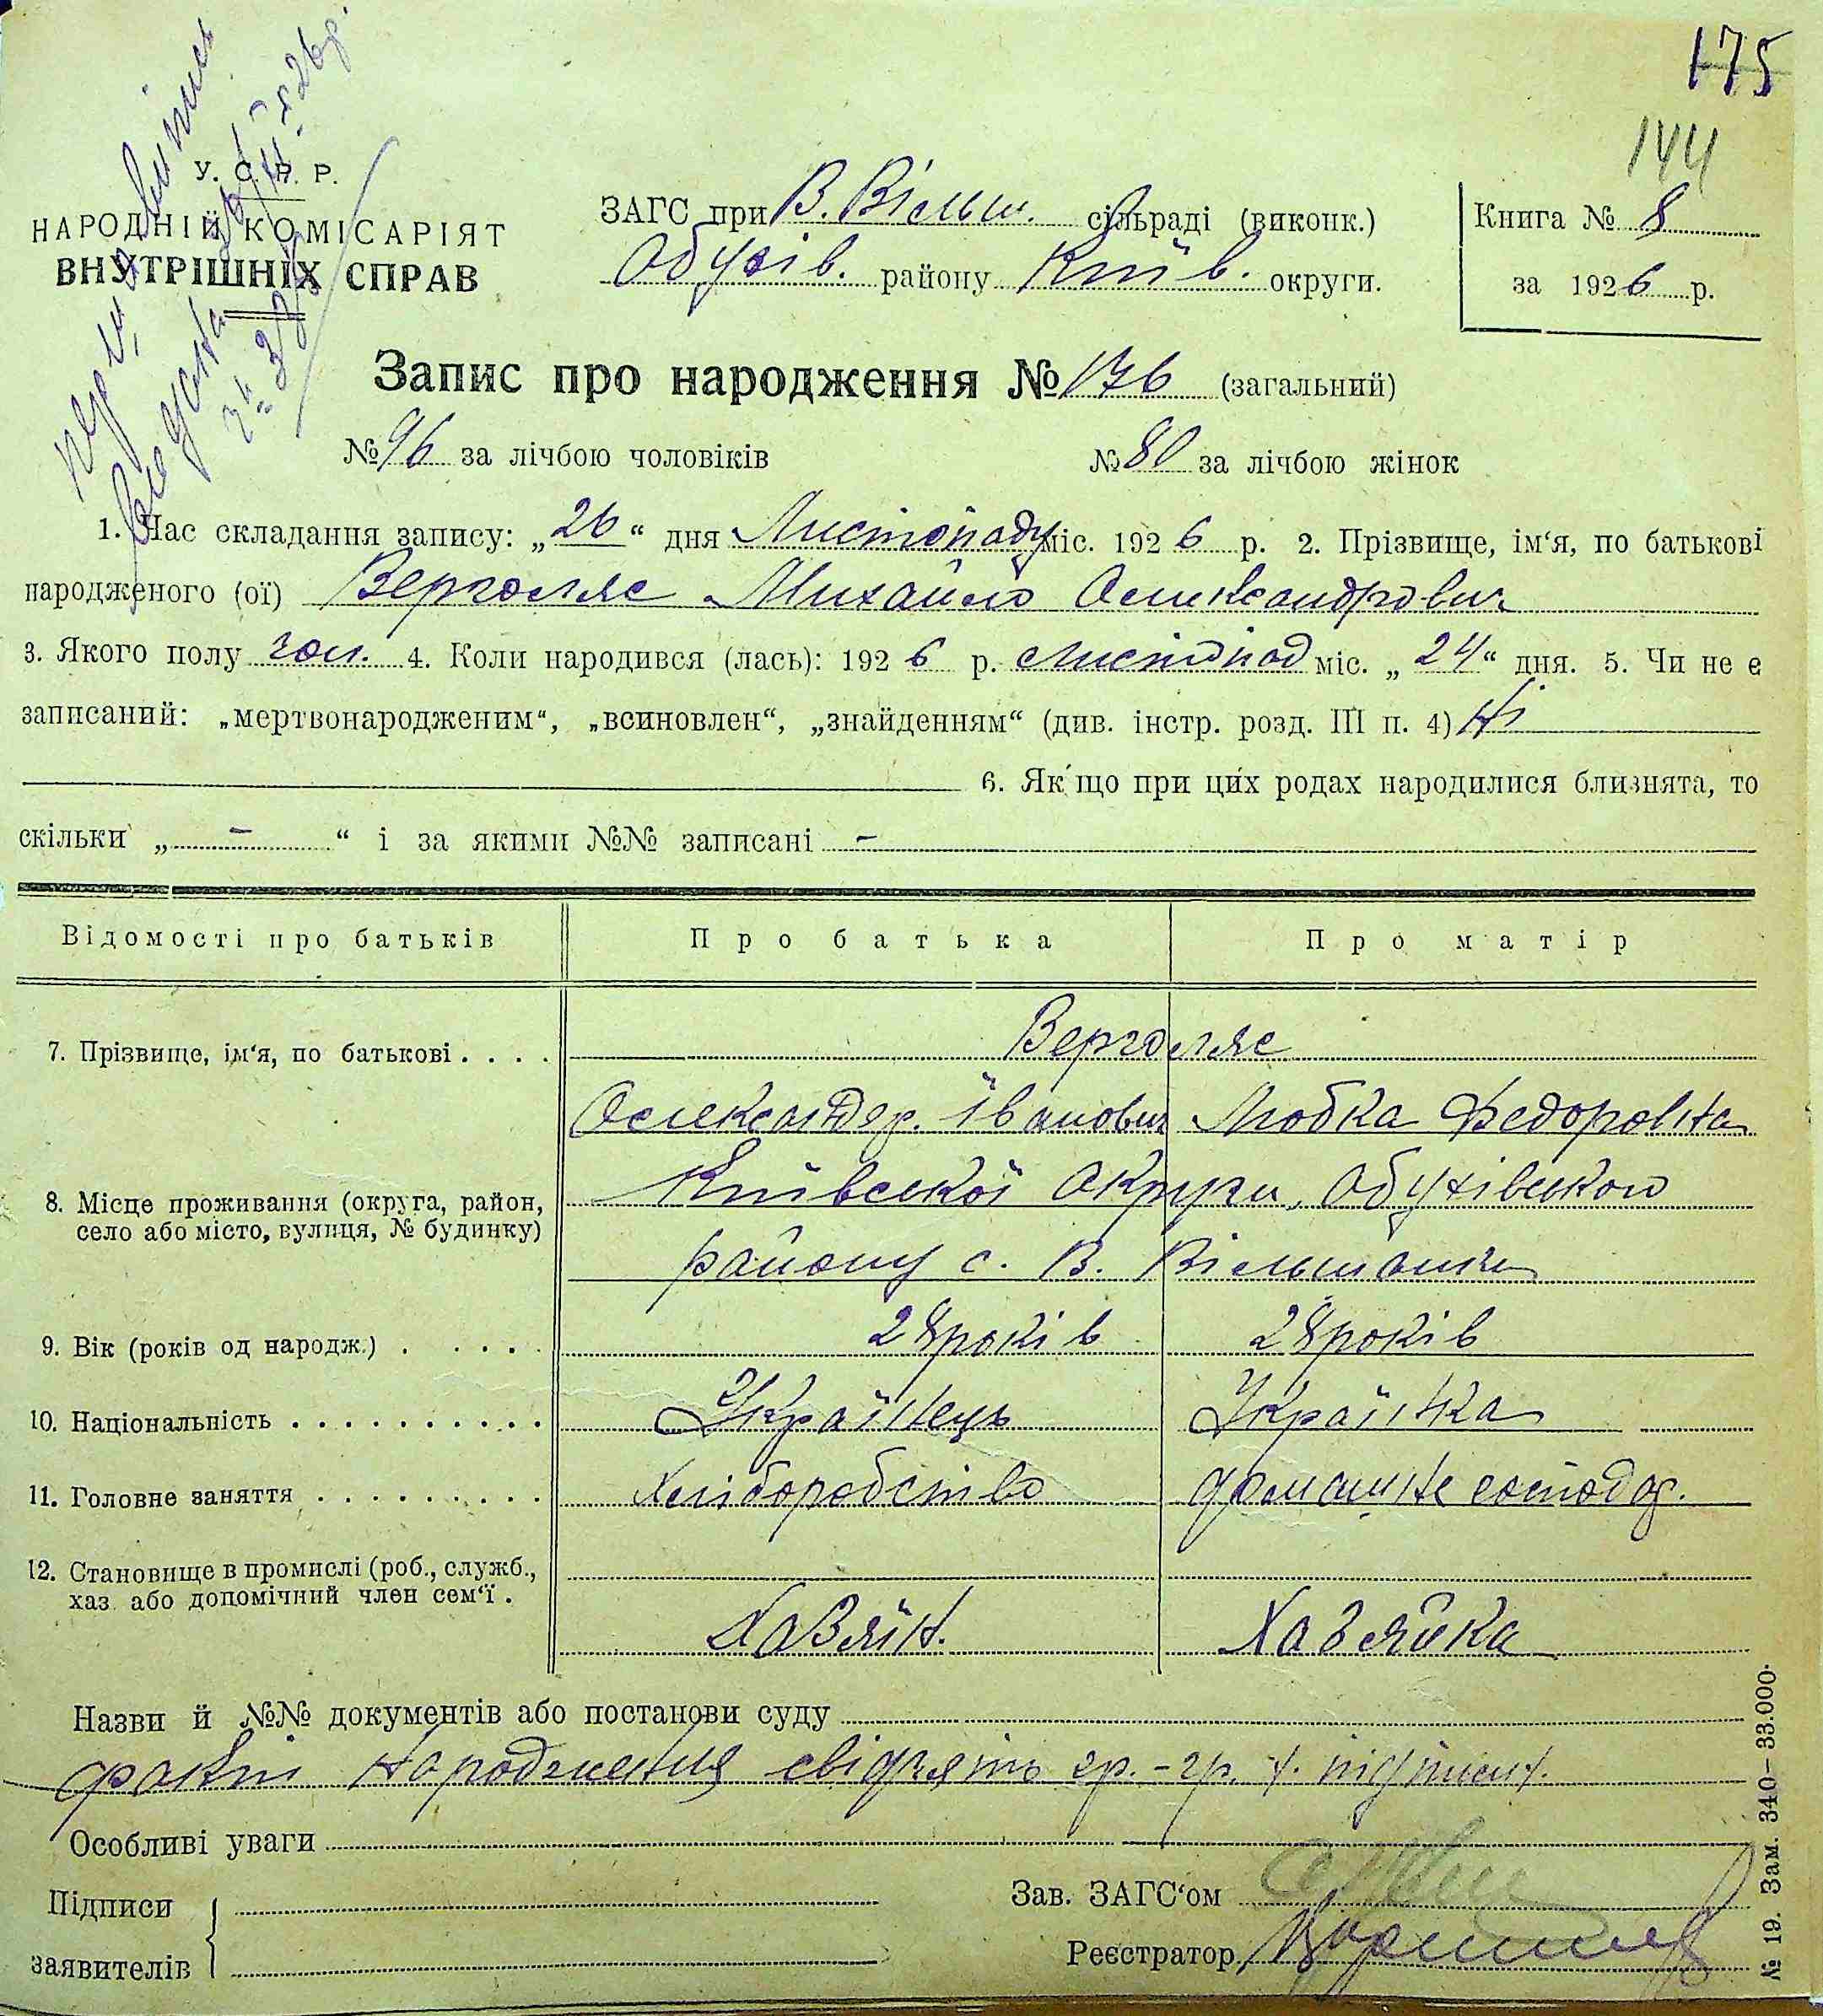 175
144
У. С. Р. Р.
НАРОДНІЙ КОМІСАРІЯТ
ВНУТРІШНІХ СПРАВ
ЗАГС при В. Вільш. сільраді (виконк.)
Обухів. району Київ. округи.
Книга № 8
за 1926 р.
Запис про народження № 176 (загальний)
№ 96 за лічбою чоловіків № 80 за лічбою жінок
1. Час складання запису: „26“ дня Листопаду міс. 1926 р. 2. Прізвище, ім‘я, по батькові
народженого (ої) Верголяс Михайло Олександрович
3. Якого полу чол. 4. Коли народився (лась): 1926 р. листопад міс. „24“ дня. 5. Чи не є
записаний: „мертвонародженим“, „всиновлен“, „знайденням“ (див. інстр. розд. III п. 4) Ні
6. Як що при цих родах народилися близнята, то
скільки „ – “ і за якими №№ записані –
Відомості про батьків Про батька Про матір
7. Прізвище, ім‘я, по батькові . . . . Верголяс
Олександер. Іванович Любка Федоровна
8. Місце проживання (округа, район, село або місто, вулиця, № будинку) Київської округи, Обухівського
району с. В. Вільшанки
9. Вік (років од народж.) . . . . . 28 років 28 років
10. Національність . . . . . . . . . . Українець Українка
11. Головне заняття . . . . . . . . . Хліборобство домашне господар.
12. Становище в промислі (роб., служб.,
хаз. або допомічний член сем‘ї .
Хазяїн. Хазяйка
Назви й №№ документів або постанови суду
факт народження свідчять гр.-гр.
Особливі уваги
Підписи
заявителів
Зав. ЗАГС‘ом
Реєстратор
№ 19. Зам. 340–33.000.